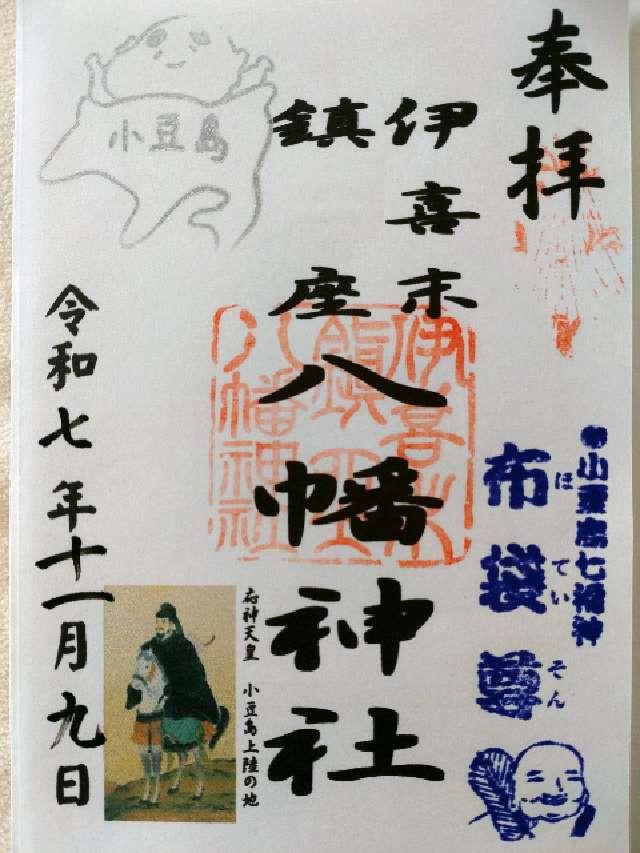 奉拝
伊喜末
鎮座
八幡神社
伊喜末
鎮座
八幡神社
小豆島
●小豆島七福神
布袋尊
ほていそん
応神天皇 小豆島上陸の地
令和七年十一月九日